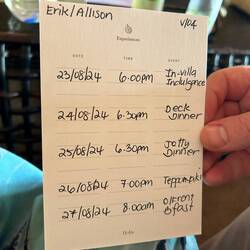 Erik/Allison
V/04
Experiences
DATE TIME EVENT
23/08/24 6.00pm In-villa
Indulgence
24/08/24 6.30pm Deck
Dinner
25/08/24 6.30pm Jetty
Dinner
26/08/24 7:00pm Teppanyaki
27/08/24 8.00am
Bfast